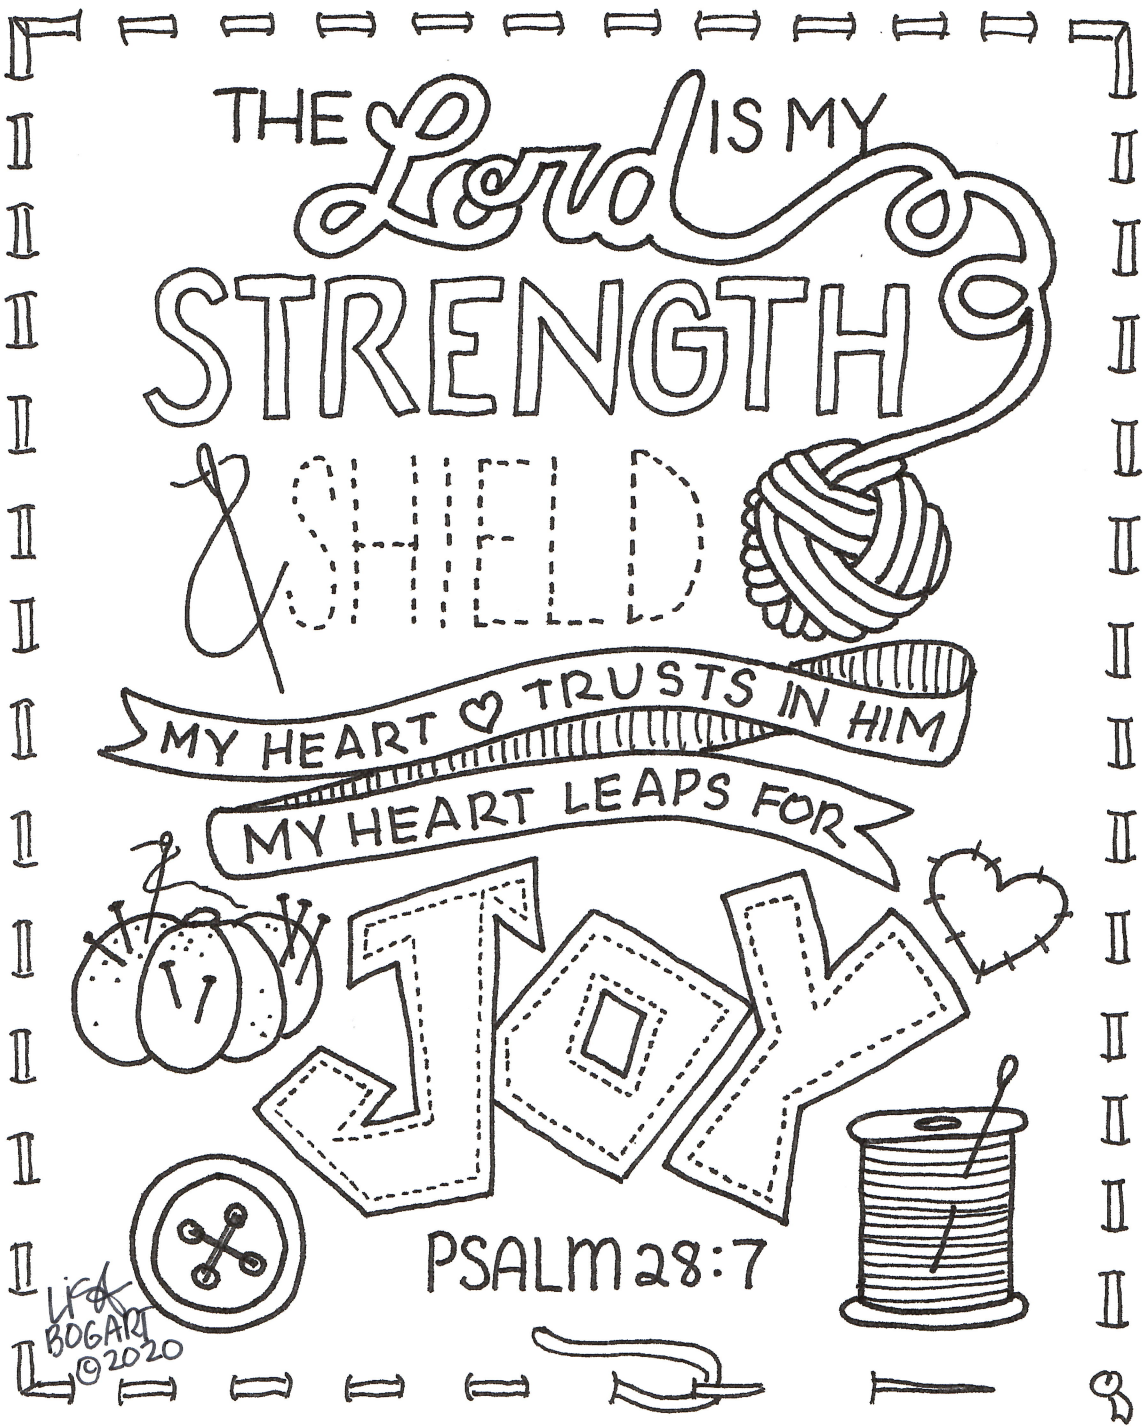 THE Lord IS MY
STRENGTH
& SHIELD
MY HEART ♡ TRUSTS IN HIM
MY HEART LEAPS FOR
JOY
PSALM 28:7
LISA
BOGART
©2020